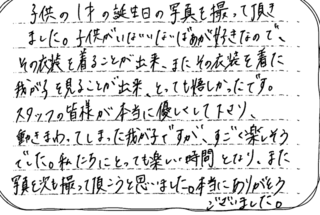 子供の1才の誕生日の写真を撮って頂き
ました。子供がいないいないばあが好きなので、
その衣装を着ることが出来、またその衣装を着た
我が子を見ることが出来、とっても嬉しかったです。
スタッフの皆様が本当に優しくして下さり、
動きまわってしまった我が子ですが、すごく楽しそう
でした。私たちにとっても楽しい時間となり、また
写真を次も撮って頂こうと思いました。本当にありがとう
ございました。